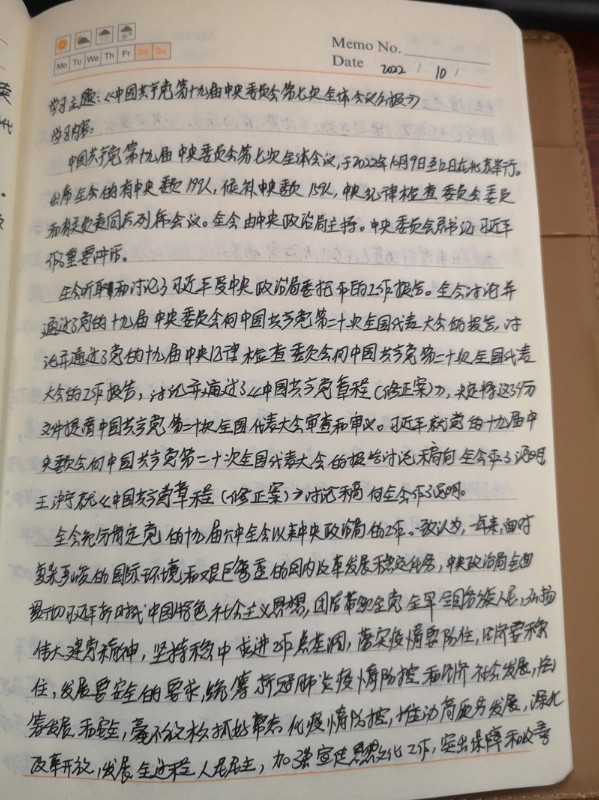 Mo Tu We Th Fr Sa Su
Memo No.
Date 2022 / 10 /
学习主题:《中国共产党第十九届中央委员会第七次全体会议公报》
学习内容:
中国共产党第十九届中央委员会第七次全体会议,于2022年10月9日至12日在北京举行。
出席全会的有中央委员199人,候补中央委员159人,中央纪律检查委员会委员
和有关负责同志列席会议。全会由中央政治局主持。中央委员会总书记习近平
作重要讲话。
全会听取和讨论了习近平受中央政治局委托作的工作报告。全会讨论并
通过了党的十九届中央委员会向中国共产党第二十次全国代表大会的报告,讨
论并通过了党的十九届中央纪律检查委员会向中国共产党第二十次全国代表
大会的工作报告,讨论并通过了《中国共产党章程(修正案)》,决定将这3份
文件提请中国共产党第二十次全国代表大会审查和审议。习近平就党的十九届中
央委会向中国共产党第二十次全国代表大会的报告讨论稿向全会作了说明
王沪宁就《中国共产党章程(修正案)》讨论稿向全会作了说明。
全会充分肯定党的十九届六中全会以来中央政治局的工作。一致认为,一年来,面对
复杂严峻的国际环境和艰巨繁重的国内改革发展稳定任务,中央政治局全面
贯彻习近平新时代中国特色社会主义思想,团结带领全党全军全国各族人民,弘扬
伟大建党精神,坚持稳中求进工作总基调,落实疫情要防住,经济要稳
住,发展要安全的要求,统筹新冠肺炎疫情防控和经济社会发展,统
筹发展和安全,毫不放松抓好常态化疫情防控,推动高质量发展,深化
改革开放,发展全过程人民民主,加强宣传思想文化工作,突出保障和改善